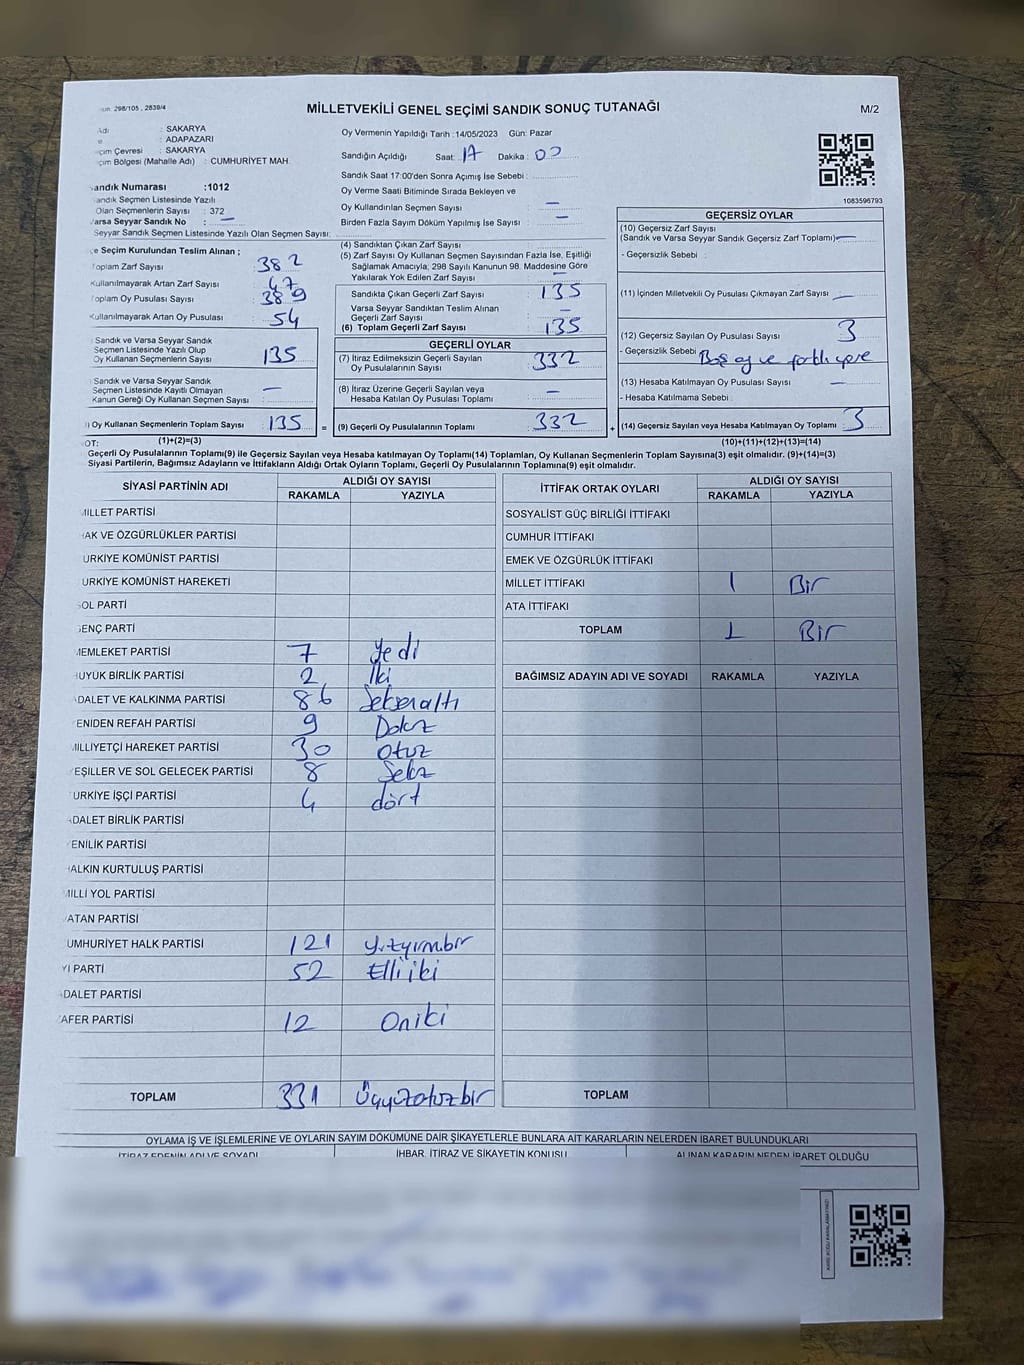 298/105 , 2839/4
MİLLETVEKİLİ GENEL SEÇİMİ SANDIK SONUÇ TUTANAĞI
M/2
: SAKARYA
: ADAPAZARI
Çevresi : SAKARYA
Bölgesi (Mahalle Adı) : CUMHURİYET MAH.
andık Numarası :1012
andık Seçmen Listesinde Yazılı
Olan Seçmenlerin Sayısı : 372
Varsa Seyyar Sandık No : –
Seyyar Sandık Seçmen Listesinde Yazılı Olan Seçmen Sayısı:
Oy Vermenin Yapıldığı Tarih :14/05/2023 Gün: Pazar
Sandığın Açıldığı Saat: 17 Dakika : 00
Sandık Saat 17:00'den Sonra Açımış İse Sebebi :
Oy Verme Saati Bitiminde Sırada Bekleyen ve
Oy Kullandırılan Seçmen Sayısı : –
Birden Fazla Sayım Döküm Yapılmış İse Sayısı : –
1083596793
e Seçim Kurulundan Teslim Alınan ;
oplam Zarf Sayısı 382
Kullanılmayarak Artan Zarf Sayısı 47
oplam Oy Pusulası Sayısı 389
Kullanılmayarak Artan Oy Pusulası 54
Sandık ve Varsa Seyyar Sandık
Seçmen Listesinde Yazılı Olup
Oy Kullanan Seçmenlerin Sayısı 135
Sandık ve Varsa Seyyar Sandık
Seçmen Listesinde Kayıtlı Olmayan
Kanun Gereği Oy Kullanan Seçmen Sayısı –
) Oy Kullanan Seçmenlerin Toplam Sayısı 135 =
(1)+(2)=(3)
(4) Sandıktan Çıkan Zarf Sayısı :
(5) Zarf Sayısı Oy Kullanan Seçmen Sayısından Fazla İse, Eşitliği
Sağlamak Amacıyla; 298 Sayılı Kanunun 98. Maddesine Göre
Yakılarak Yok Edilen Zarf Sayısı : –
Sandıkta Çıkan Geçerli Zarf Sayısı : 135
Varsa Seyyar Sandıktan Teslim Alınan
Geçerli Zarf Sayısı : –
(6) Toplam Geçerli Zarf Sayısı : 135
GEÇERLİ OYLAR
(7) İtiraz Edilmeksizin Geçerli Sayılan
Oy Pusulalarının Sayısı : 332
(8) İtiraz Üzerine Geçerli Sayılan veya
Hesaba Katılan Oy Pusulası Toplamı : –
(9) Geçerli Oy Pusulalarının Toplamı : 332 +
GEÇERSİZ OYLAR
(10) Geçersiz Zarf Sayısı
(Sandık ve Varsa Seyyar Sandık Geçersiz Zarf Toplamı) –
- Geçersizlik Sebebi :
(11) İçinden Milletvekili Oy Pusulası Çıkmayan Zarf Sayısı : –
(12) Geçersiz Sayılan Oy Pusulası Sayısı : 3
- Geçersizlik Sebebi : Boş oy ve
(13) Hesaba Katılmayan Oy Pusulası Sayısı : –
- Hesaba Katılmama Sebebi :
(14) Geçersiz Sayılan veya Hesaba Katılmayan Oy Toplamı : 3
(10)+(11)+(12)+(13)=(14)
OT:
Geçerli Oy Pusulalarının Toplamı(9) ile Geçersiz Sayılan veya Hesaba Katılmayan Oy Toplamı(14) Toplamları, Oy Kullanan Seçmenlerin Toplam Sayısına(3) eşit olmalıdır. (9)+(14)=(3)
Siyasi Partilerin, Bağımsız Adayların ve İttifakların Aldığı Ortak Oyların Toplamı, Geçerli Oy Pusulalarının Toplamına(9) eşit olmalıdır.
SİYASİ PARTİNİN ADI ALDIĞI OY SAYISI
RAKAMLA YAZIYLA
MİLLET PARTİSİ
AK VE ÖZGÜRLÜKLER PARTİSİ
URKİYE KOMÜNİST PARTİSİ
URKİYE KOMÜNİST HAREKETİ
OL PARTİ
ENÇ PARTİ
MEMLEKET PARTİSİ 7 Yedi
UYÜK BİRLİK PARTİSİ 2 İki
DALET VE KALKINMA PARTİSİ 86 Seksenaltı
ENİDEN REFAH PARTİSİ 9 Dokuz
MİLLİYETÇİ HAREKET PARTİSİ 30 otuz
EŞİLLER VE SOL GELECEK PARTİSİ 8 Sekiz
URKİYE İŞÇİ PARTİSİ 4 dört
DALET BİRLİK PARTİSİ
ENİLİK PARTİSİ
ALKIN KURTULUŞ PARTİSİ
MİLLİ YOL PARTİSİ
ATAN PARTİSİ
UMHURİYET HALK PARTİSİ 121 Yüzyirmibir
Yİ PARTİ 52 Elli iki
DALET PARTİSİ
AFER PARTİSİ 12 Oniki
TOPLAM 331 Üçyüzotuzbir
İTTİFAK ORTAK OYLARI ALDIĞI OY SAYISI
RAKAMLA YAZIYLA
SOSYALİST GÜÇ BİRLİĞİ İTTİFAKI
CUMHUR İTTİFAKI
EMEK VE ÖZGÜRLÜK İTTİFAKI
MİLLET İTTİFAKI 1 Bir
ATA İTTİFAKI
TOPLAM 1 Bir
BAĞIMSIZ ADAYIN ADI VE SOYADI RAKAMLA YAZIYLA
TOPLAM
OYLAMA İŞ VE İŞLEMLERİNE VE OYLARIN SAYIM DÖKÜMÜNE DAİR ŞİKAYETLERLE BUNLARA AİT KARARLARIN NELERDEN İBARET BULUNDUKLARI
İTİRAZ EDENİN ADI VE SOYADI İHBAR, İTİRAZ VE ŞİKAYETİN KONUSU ALINAN KARARIN NEDEN İBARET OLDUĞU